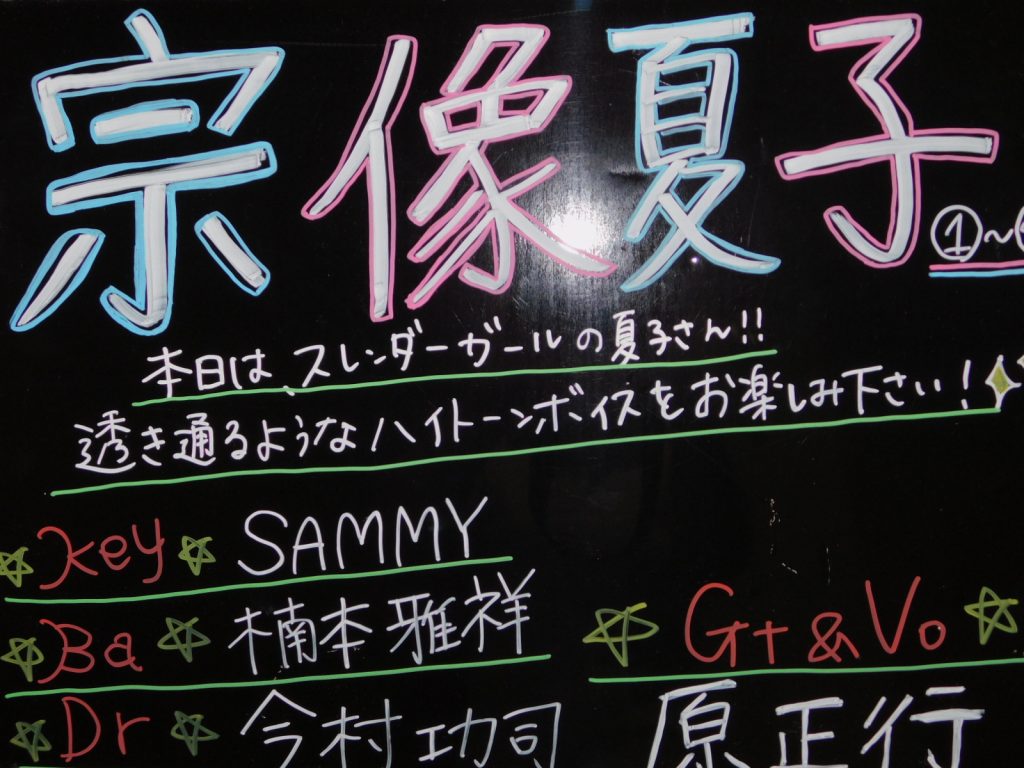 宗像夏子
①～
本日は、スレンダーガールの夏子さん!!
透き通るようなハイトーンボイスをお楽しみ下さい!
Key SAMMY
Ba 楠本雅祥
Gt & Vo
Dr 今村功司
原正行